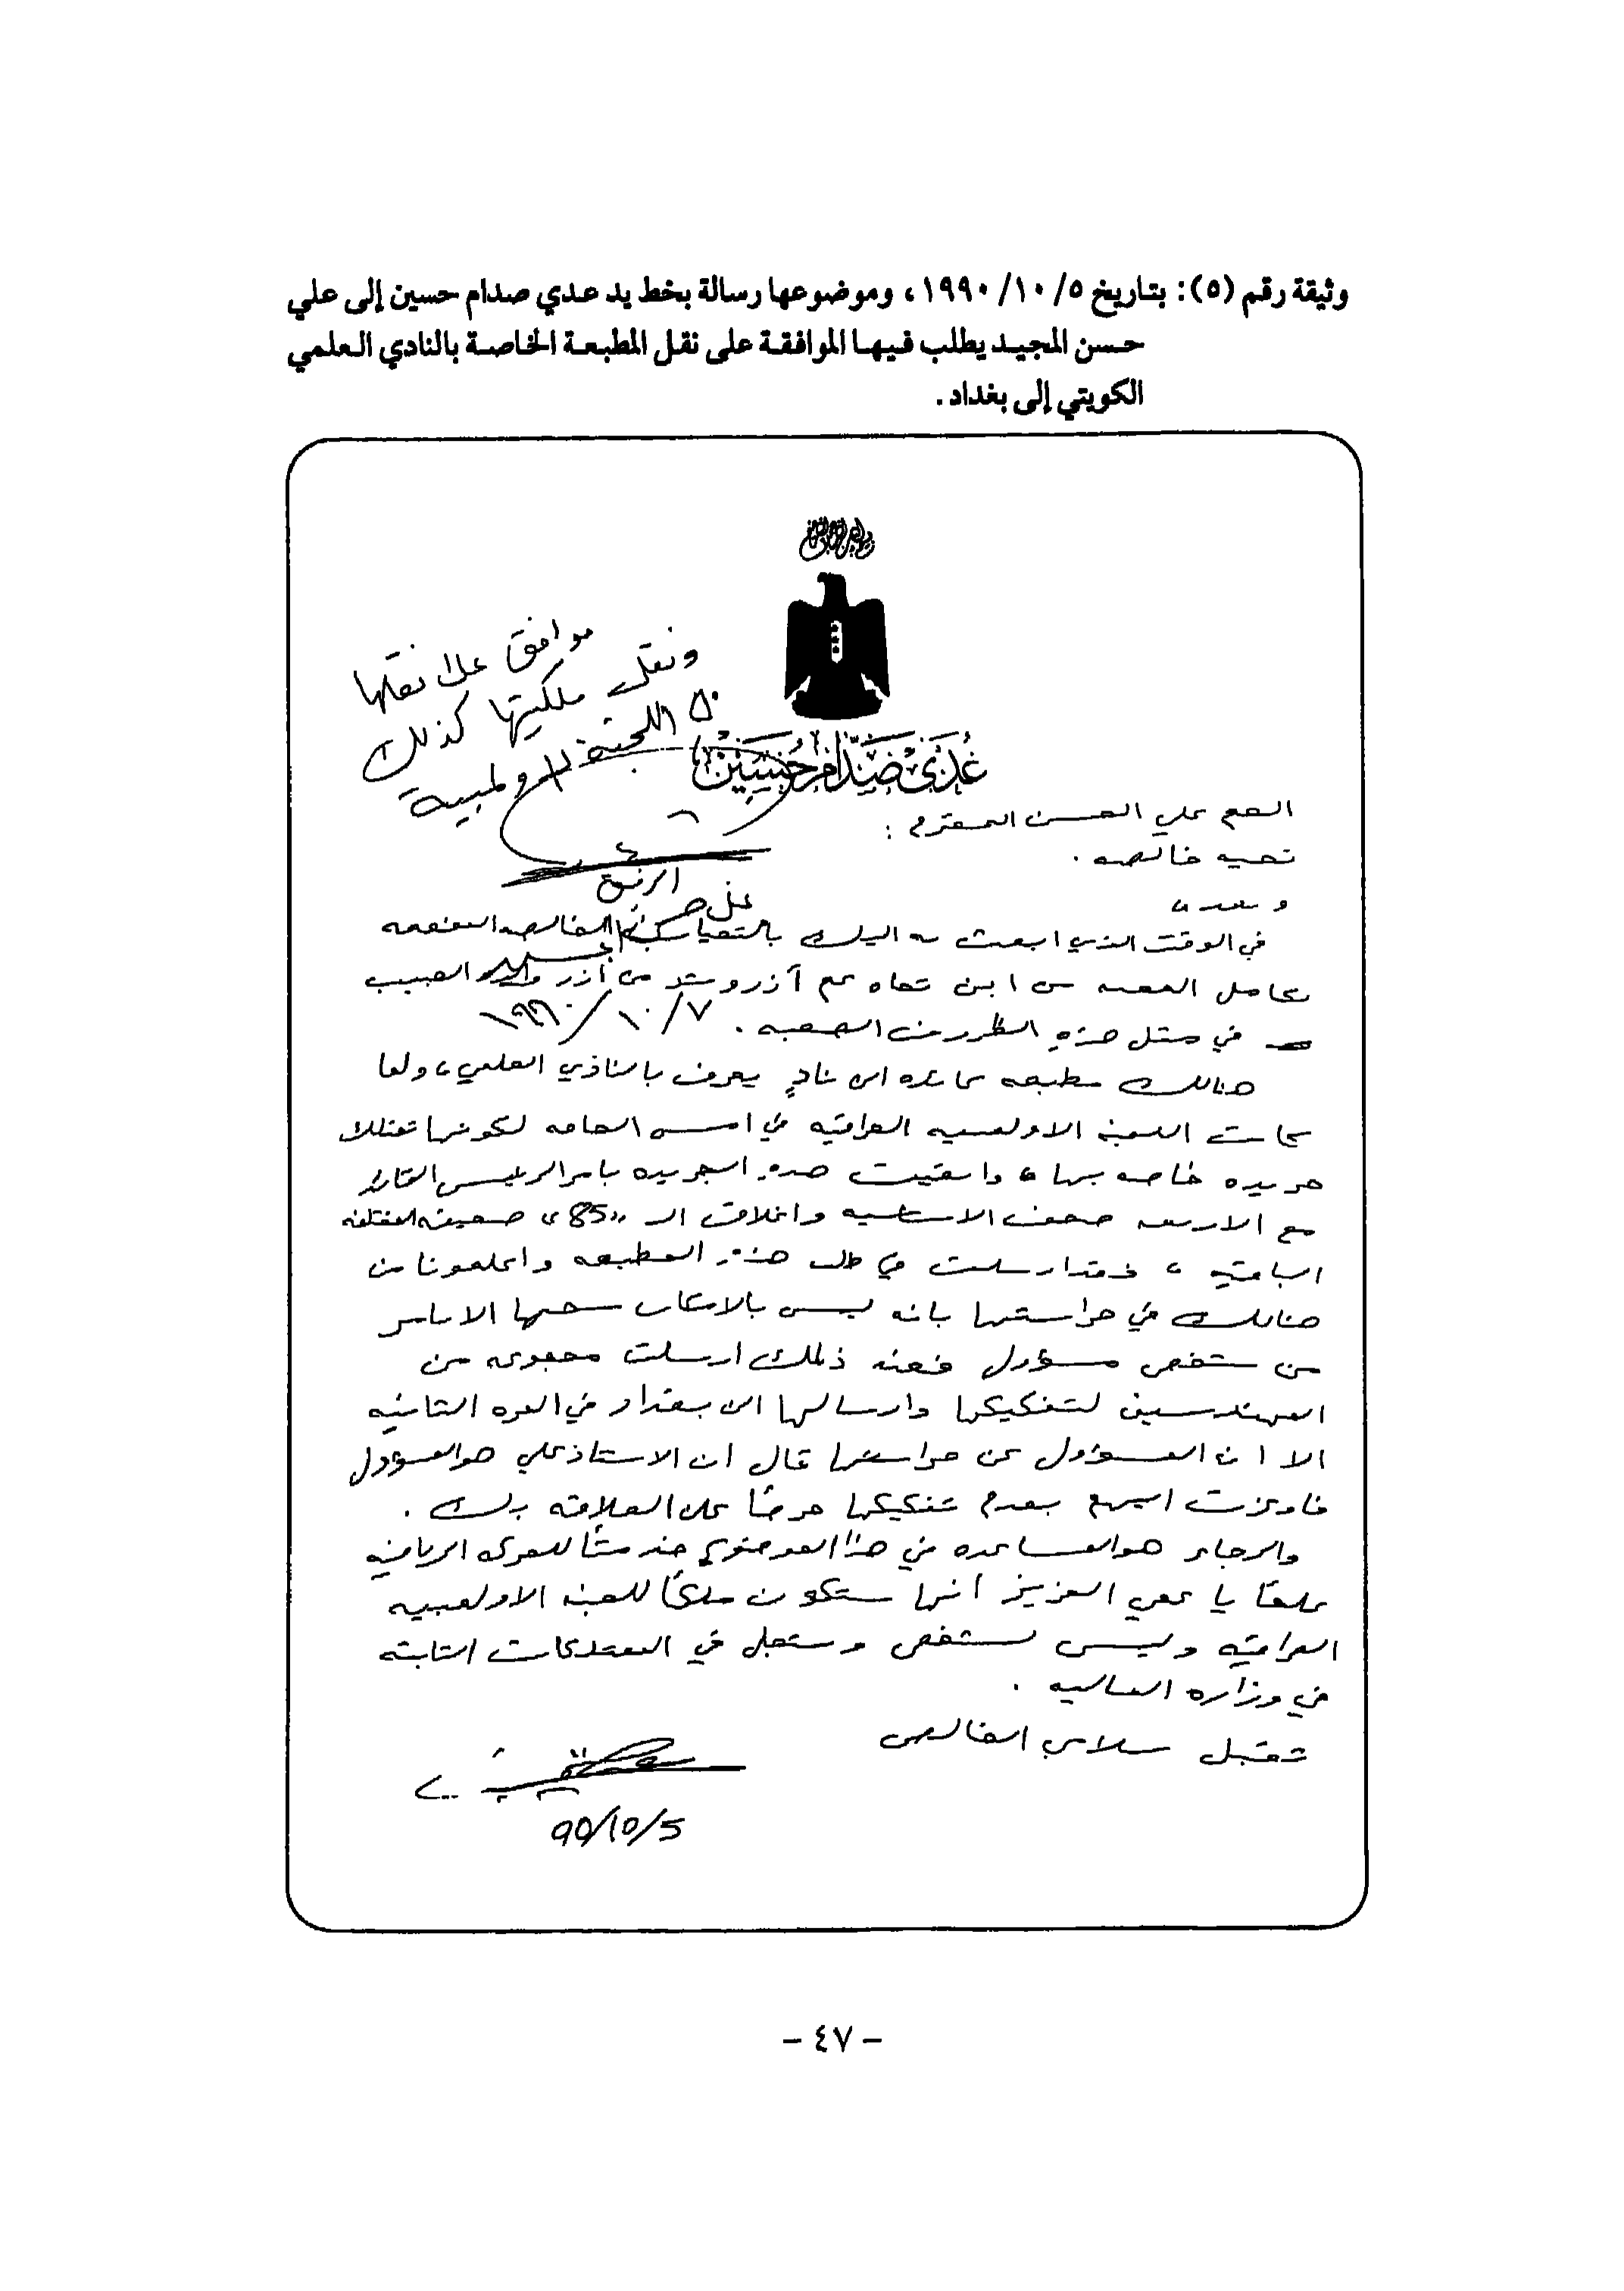 وثيقة رقم (٥): بتاريخ ٥/ ١٠/ ١٩٩٠، وموضوعها رسالة بخط يد عدي صدام حسين إلى علي
حسن المجيد يطلب فيها الموافقة على نقل المطبعة الخاصة بالنادي العلمي
الكويتي إلى بغداد.
بسم الله الرحمن الرحيم
عُدَيّ صَدّام حُسَيْن
موافق على نقلها
ونقل ملكيتها كذلك
الى اللجنة الاولمبية
الرفيق
علي حسن المجيد
٧/ ١٠/ ١٩٩٠
العم علي الحسن المحترم :
تحيه خالصه .
وبعد ،
في الوقت الذي ابعث به اليك بالتحيات الخالصه المفعمه
بكامل المحبه من ابن تجاه عم آزر وشد من أزر والده الحبيب
في مثل هذهِ الظروف الصعبه .
هنالك مطبعه عائده الى نادٍ يعرف بالنادي العلمي ، ولما
كانت اللجنه الاولمبيه العراقيه في امس الحاجه لكونها تمتلك
جريده خاصه بها ، وابقيت هذهِ الجريده بامر الرئيس القائد
مع الاربعه صحف الاساسيه واغلاق الـ «85» صحيفه المختلفه
الباقيه ، فقد ارسلت في طلب هذهِ المطبعه واعلمونا من
هنالك في حراستها بانه ليس بالامكان سحبها الا بامر
من شخص مسؤول فعند ذلك ارسلت مجموعه من
المهندسين لتفكيكها وارسالها الى بغداد في المره الثانيه
الا ان المسؤول عن حراستها قال ان الاستاذ علي هو المسؤول
فاوعزت اليهم بعدم تفكيكها حرصًا على العلاقه بك .
والرجاء هو المساعده في هذا الموضوع خدمتًا للحركه الرياضيه
علمًا يا عمي العزيز أنها ستكون ملكًا للجنه الاولمبيه
العراقيه وليس لشخص وستجل في الممتلكات الثابته
في وزاره الماليه .
تقبل سلامي الخالص
90/10/5
- ٤٧ -